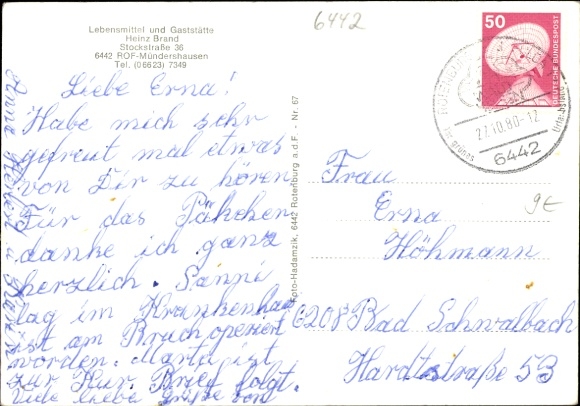 Lebensmittel und Gaststätte
Heinz Brand
Stockstraße 36
6442 ROF-Mündershausen
Tel. (06623) 7349
6442
50
DEUTSCHE BUNDESPOST
ROTENBURG
27.10.80-12
6442
Liebe Erna!
Habe mich sehr
gefreut mal etwas
von Dir zu hören
Für das Päkchen
danke ich ganz
herzlich. Sanni
lag im Krankenhaus
ist am Bruch operiert
worden. Marta ist
zur Kur. Brief folgt.
Viele liebe Grüße von
Anna
Frau
Erna
Höhmann
6208 Bad Schwalbach
Hardtstraße 53
9E
oto-Hadamzik, 6442 Rotenburg a.d.F. - Nr. 67